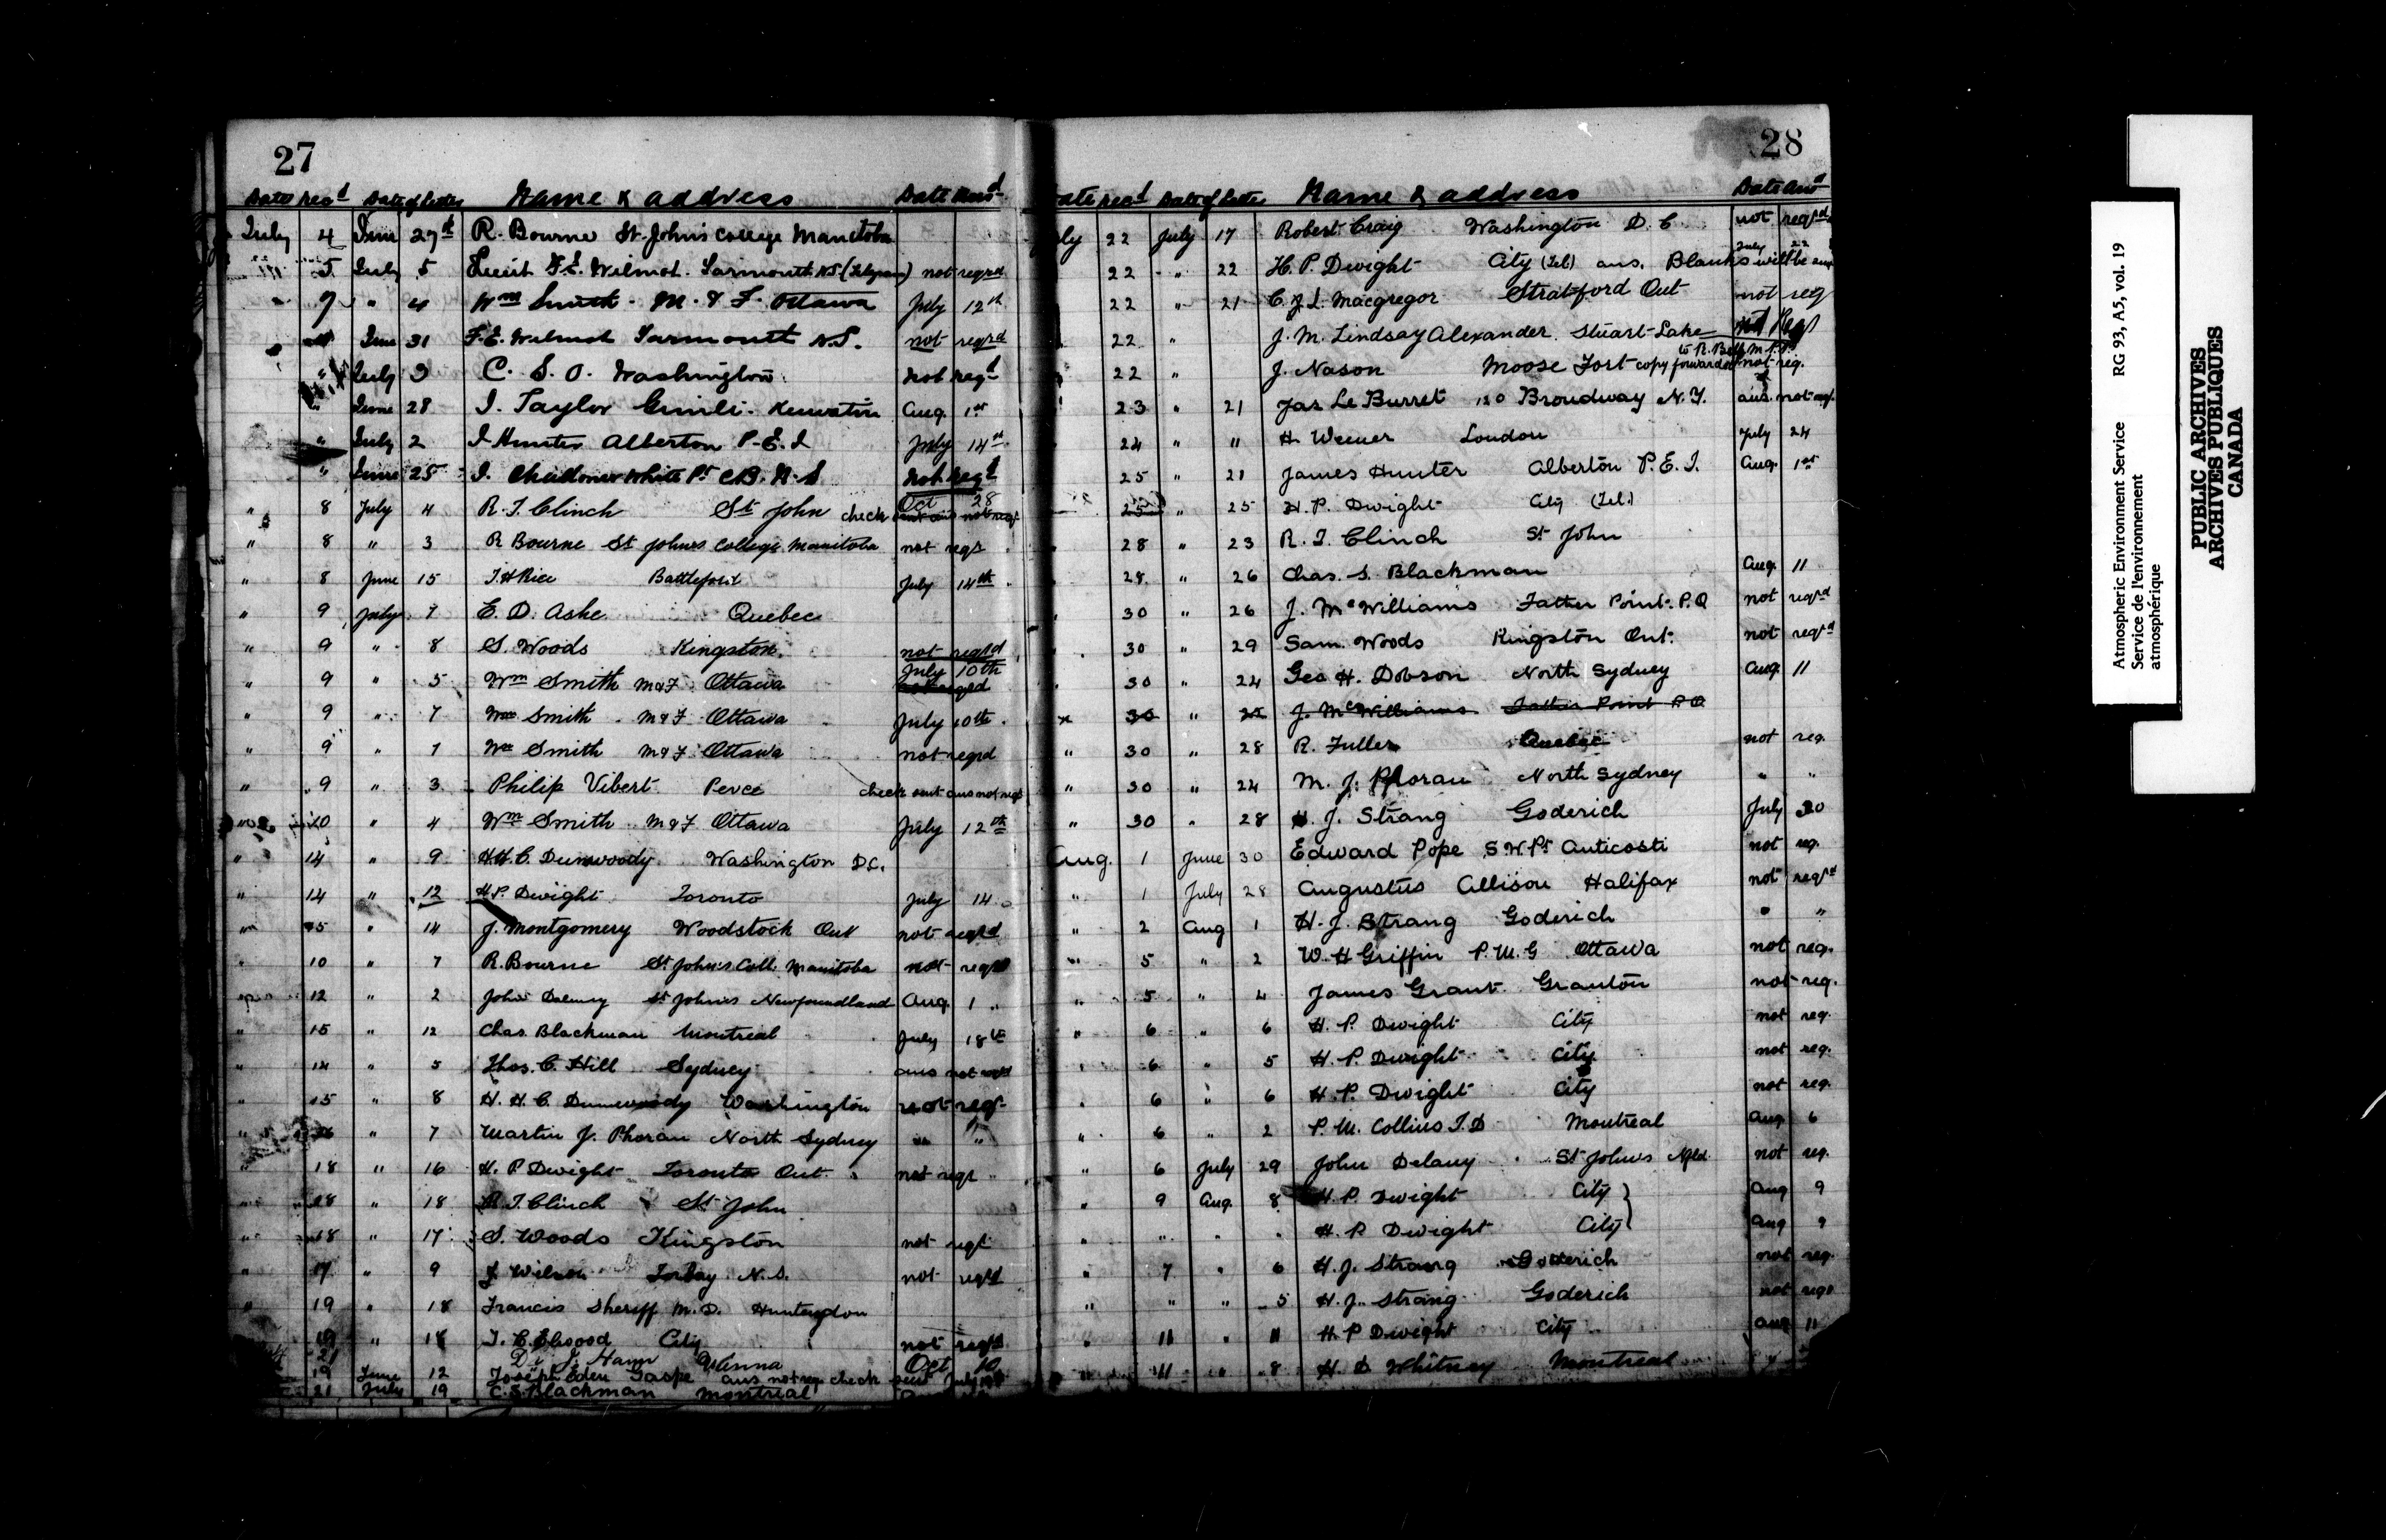 27
Date recd Date of letter Name & address Date Ansd
July 4 June 27th R. Bourne St. John's College Manitoba
5 July 5 Lieut F.E. Wilmot. Yarmouth N.S. (Telegram) not reqrd
7 " 4 Wm Smith. M. & F. Ottawa July 12th
June 31 F.E. Wilmot Yarmouth N.S. not reqrd
" July 3 C. S. O. Washington. not reqd
" June 28 I. Taylor Gimli. Keewatin Aug. 1st
" July 2 J Hunter Alberton P.E.I July 14th
" June 25 White Pt C.B. N.S not reqd
" 8 July 4 R. J. Clinch St John check sent ans not reqr Oct 28
" 8 " 3 R Bourne St Johns College Manitoba not reqr
" 8 June 15 J.H Rice Battleford July 14th
" 9 July 7 E. D. Ashe Quebec
" 9 " 8 S. Woods Kingston. not reqrd
" 9 " 5 Wm Smith M&F Ottawa July 10th not reqrd
" 9 " 7 Wm Smith M&F Ottawa July 10th
" 9 " 7 Wm Smith M&F Ottawa not reqrd
" 9 " 3 Philip Vibert Perce check sent ans not reqr
" 10 " 4 Wm Smith M&F Ottawa July 12th
" 14 " 9 H.H.C. Dunwoody Washington D.C.
" 14 " 12 H.P. Dwight Toronto July 14
" 15 " 14 J. Montgomery Woodstock Ont not reqrd
" 10 " 7 R. Bourne St John's Coll. Manitoba not reqrd
" 12 " 2 John Delaney St Johns Newfoundland Aug. 1
" 15 " 12 Chas. Blackman Montreal July 18th
" 14 " 5 Thos. C. Hill Sydney ans not
" 15 " 8 H. H. C. Dunwoody Washington not reqr
" 16 " 7 Martin J. Phoran North Sydney " "
" 18 " 16 H. P. Dwight Toronto Ont. not reqr
" 18 " 18 R. J. Clinch St John
" 18 " 17 S. Woods Kingston not reqr
" 17 " 9 J. Wilson Torbay N.S. not reqrd
" 19 " 18 Francis Sheriff M.D. Huntingdon
19 " 18 City not reqrd
21 Dr J. Hann Vienna Oct 10
19 June 12 Joseph Eden Gaspe ans. not req. check sent July 19th
21 July 19 C. S. Blackman Montreal
28
Date recd Date of letter Name & address Date Ansd
July 22 July 17 Robert Craig Washington D. C. not reqrd
22 " 22 H. P. Dwight City (Tel) ans. Blanks will be July 22
22 " 21 C. J. L. Macgregor Stratford Ont not req
22 " J. M. Lindsay Alexander. Stuart Lake not Reqr
22 " J. Nason Moose Fort copy forwarded to R. Bell M.P.P. not req.
23 " 21 Jas Le Burret 120 Broadway N.Y. ans. not reqr.
24 " " H. Weener London July 24
25 " 21 James Hunter Alberton P.E.I. Aug. 1st
25 " 25 H. P. Dwight City (Tel.)
28 " 23 R. J. Clinch St John
28. " 26 Chas. S. Blackman Aug. 11
30 " 26 J. McWilliams Father Point. P.Q not reqrd
30 " 29 Sam. Woods Kingston Ont. not reqrd
30 " 24 Geo H. Dobson North Sydney Aug. 11
30 " 25 J. McWilliams Father Point P Q
" 30 " 28 R. Fuller Quebec not req.
" 30 " 24 M. J. Phoran North Sydney " "
" 30 " 28 H. J. Strang Goderich July 30
Aug. 1 June 30 Edward Pope S.W.Pt Anticosti not req.
" 1 July 28 Augustus Allison Halifax not reqrd
" 2 Aug 1 H. J. Strang Goderich " "
" 5 " 2 W. H Griffin P. M. G Ottawa not req.
" 5 " 4 James Grant Granton not req.
" 6 " 6 H. P. Dwight City not req.
6 " 5 H. P. Dwight City not req.
6 " 6 H. P. Dwight City not req.
" 6 " 2 P. M. Collins T.D Montreal Aug 6
" 6 July 29 John Delany St Johns Nfld. not req.
" 9 Aug. 8 H. P. Dwight City Aug 9
" " " " H. P. Dwight City Aug 9
" 7 " 6 H. J. Strang Goderich not req.
" " " 5 H. J. Strang Goderich not reqr
" 11 " 11 H. P Dwight City Aug 11
" 11 " 8 H. D. Whitney Montreal
Atmospheric Environment Service RG 93, A5, vol. 19
Service de l'environnement
atmosphérique
PUBLIC ARCHIVES
ARCHIVES PUBLIQUES
CANADA